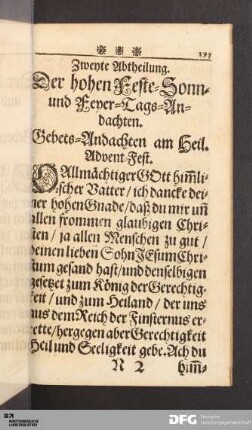 ❋ ❋ ❋ 195
Zweyte Abtheilung.
Der hohen Feste-Sonn-
und Feyer-Tags-An-
dachten.
Gebets-Andachten am Heil.
Advent-Fest.
O Allmächtiger GOtt him̃li-
scher Vatter / ich dancke dei-
ner hohen Gnade / daß du mir uñ
allen frommen glaubigen Chri-
sten / ja allen Menschen zu gut /
deinen lieben Sohn JEsum Chri-
stum gesand hast / und denselbigen
gesetzet zum König der Gerechtig-
keit / und zum Heiland / der uns
aus dem Reich der Finsternus er-
rette / hergegen aber Gerechtigkeit
Heil und Seeligkeit gebe. Ach du
N 2 him̃-
DFG Deutsche
Forschungsgemeinschaft